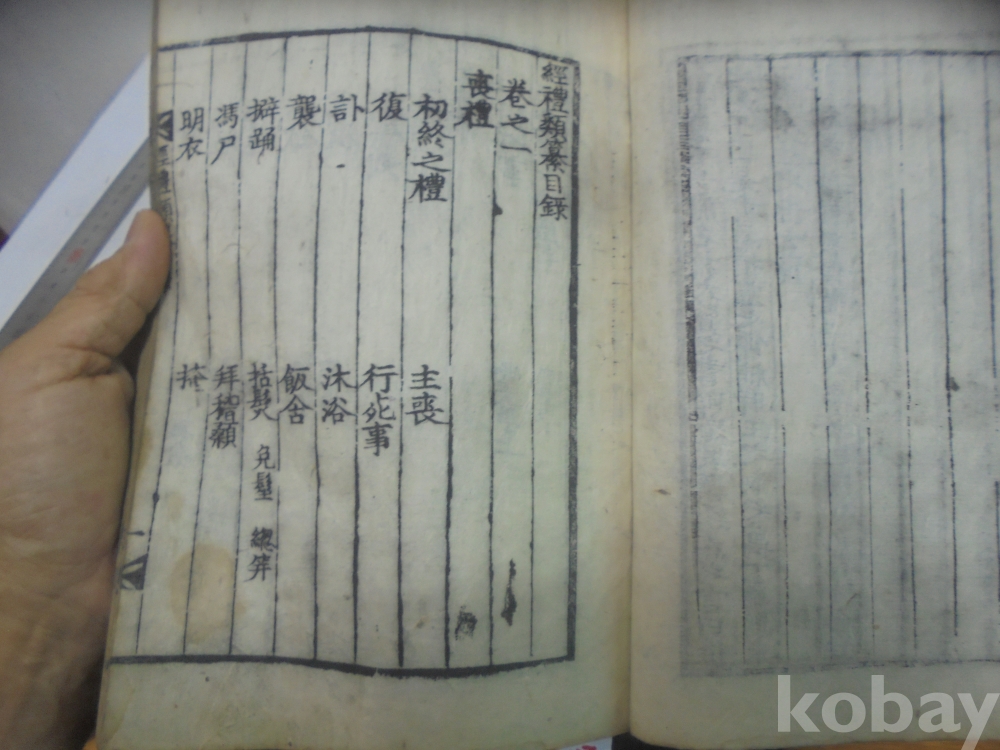 經禮類纂目錄
卷之一
喪禮
初終之禮 主喪
復 行死事
訃 沐浴
襲 飯含
擗踊 括髮 免髽 總笄
馮尸 拜稽顙
明衣 掩
一
kobay